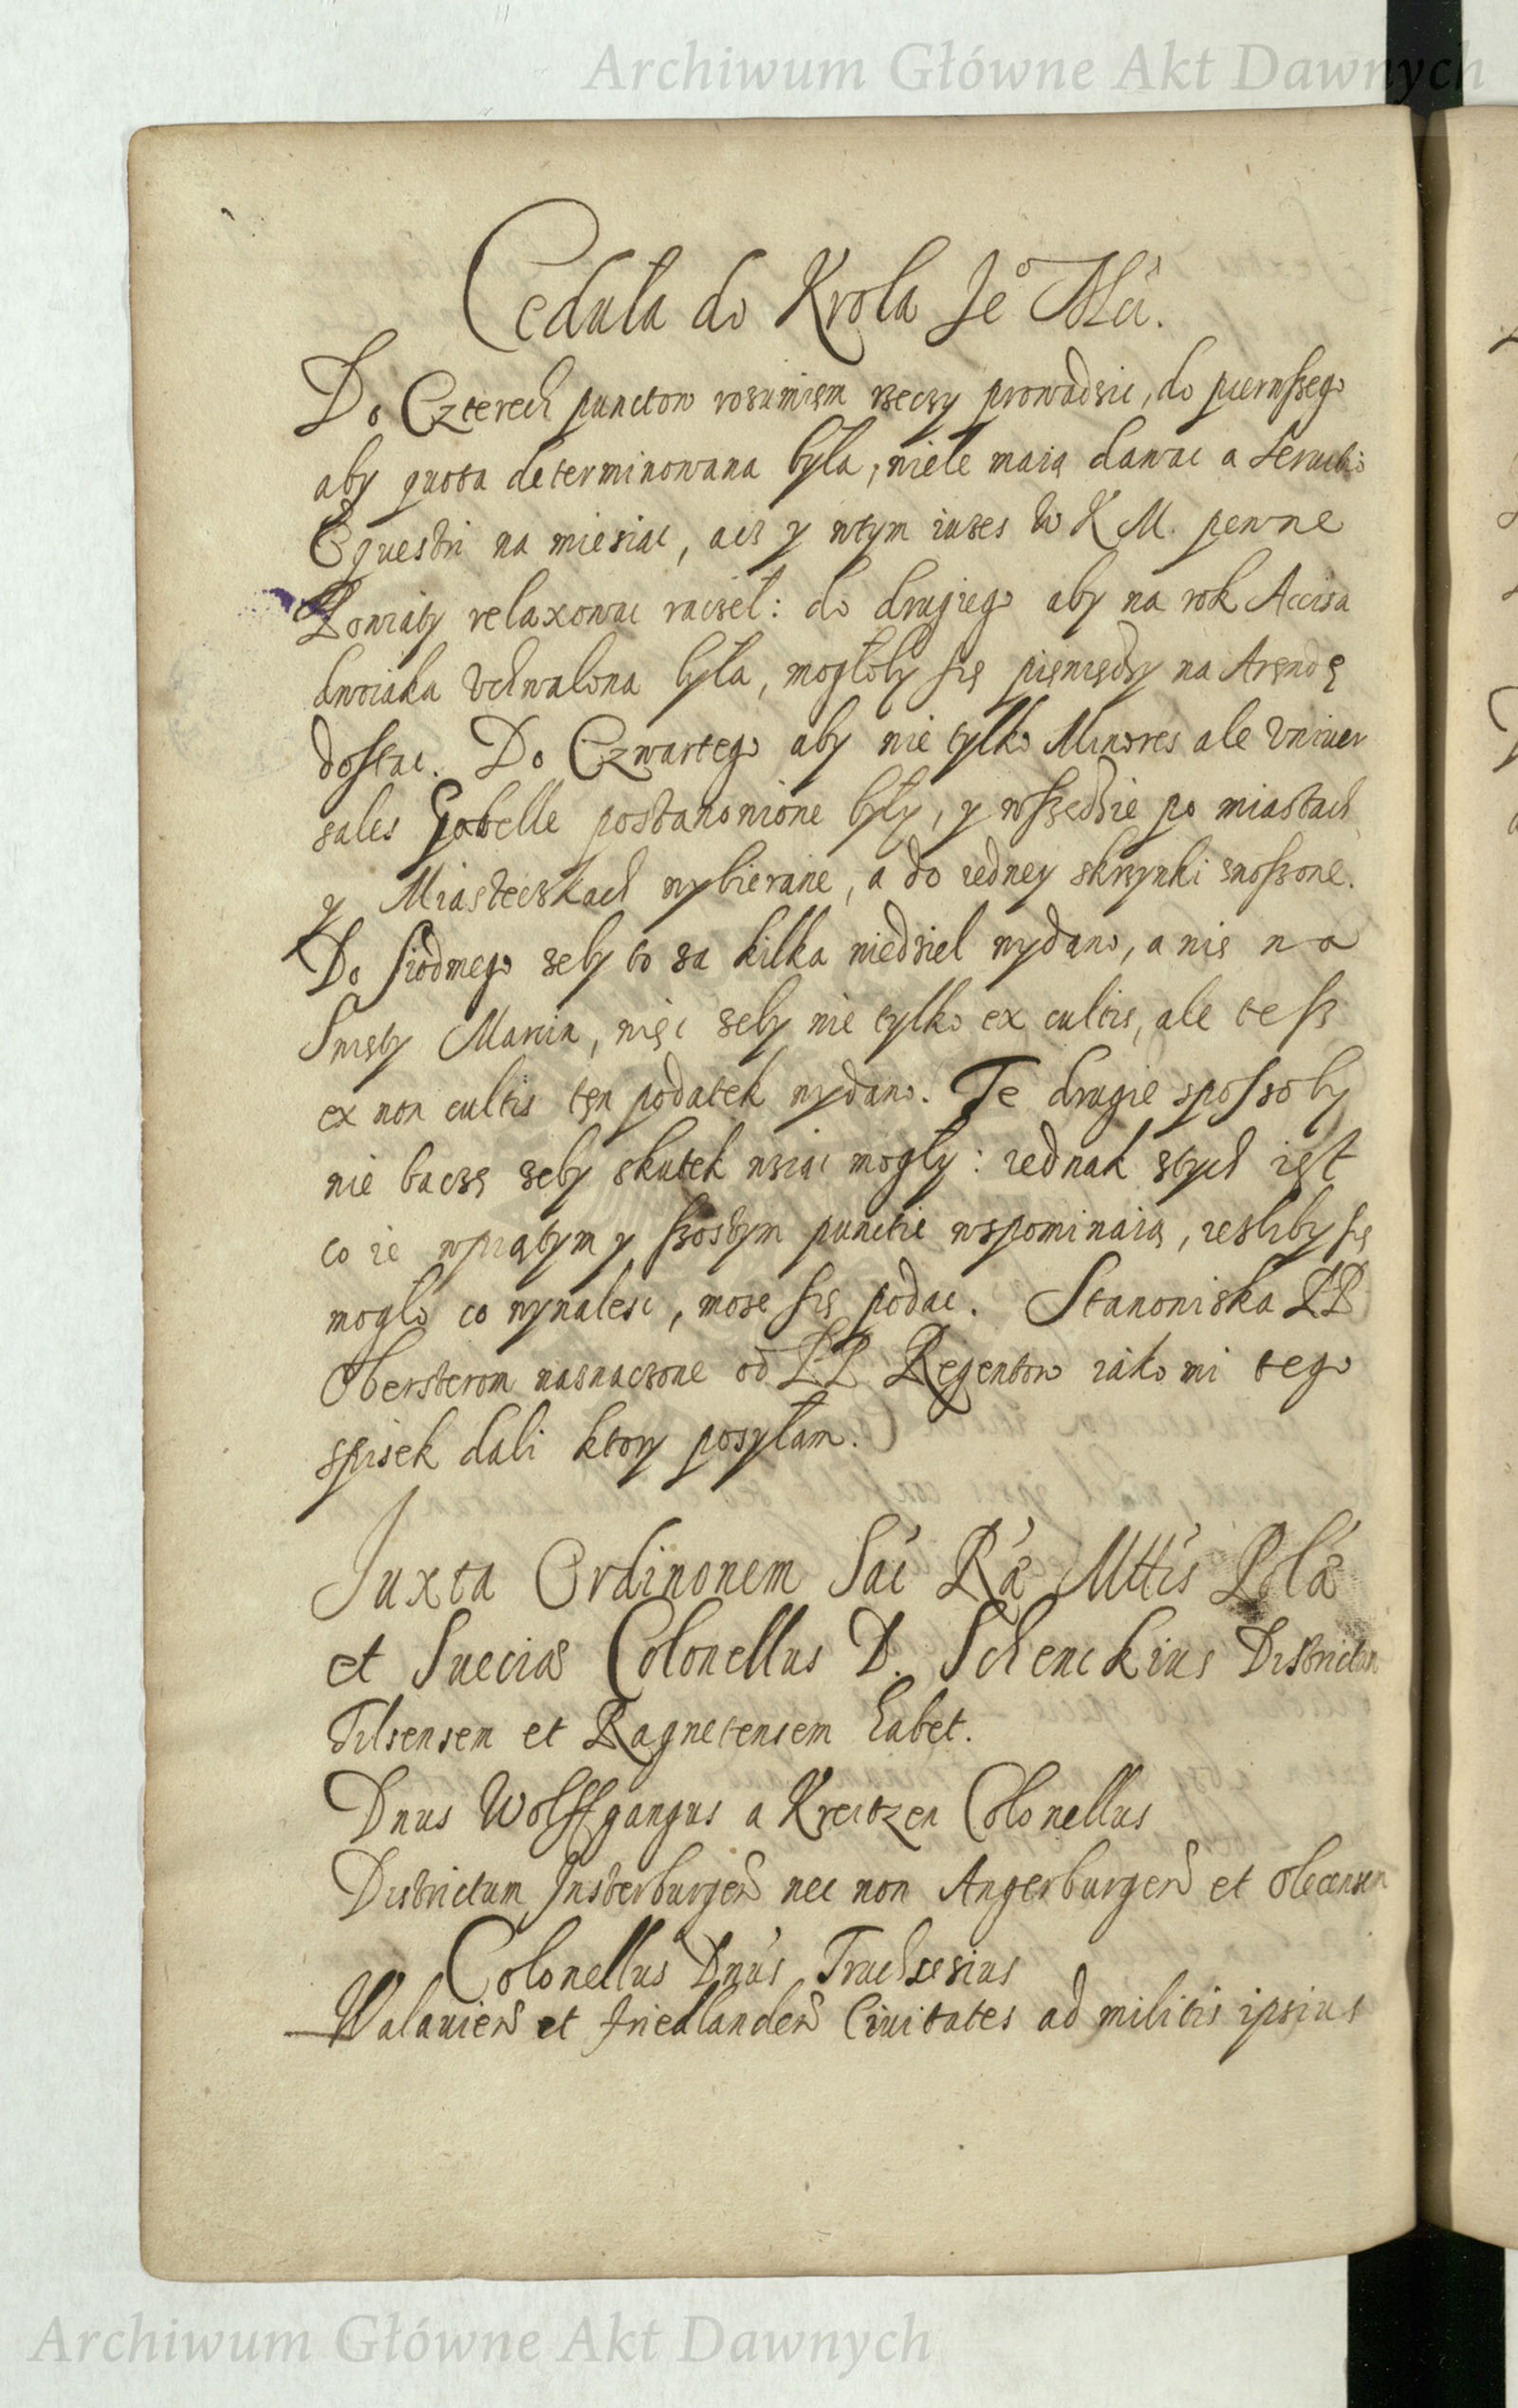 Archiwum Główne Akt Dawnych
Ceduła do Krola Je° Mci.
Do Czterech punctow rozumiem rzeczy prowadzic, do pierwszego
aby quota determinowana była, wiele maią dawac a Servitio
Equestri na miesiac, acz y wtym iuzes W K M. pewne
Powiaty relaxowac raczeł: do drugiego aby na rok Accisa
dwoiaka Uchwalona była, mogłoby się pięniędzy na Aręndę
dostac. Do Czwartego aby nie tylko Minores ale Univer
sales Gabelle postanowione były, y wszędzie po miastach
y Miasteczkach wybierane, a do iedney skrzynki znoszone.
Do siodmego zeby to za kilka niedziel wydano, a nie na
Swięty Marcin, więc zeby nie tylko ex cultis, ale tesz
ex non cultis tęn podatek wydano. Te drugie sposoby
nie baczę zeby skutek wziac mogły: iednak ztych iest
co ie wpiątym y szostym punctie wspominaią, iesliby się
mogło co wynalesc, moze się podac. Stanowiska PP
Obersterom naznaczone od PP Regentow iako mi tego
spisek dali ktory posyłam.
Juxta Ordinonem Sac Ræ Mttis Polæ
et Sueciæ Colonellus D. Schenckius Districtum
Tilsensem et Ragnetensem habet.
Dnus Wolffgangus a Kreitzen Colonellus
Districtum Insterburgen nec non Angerburgen et Olecensen
Colonellus Dnus Truchsesius
Walavien et Friedlanden Civitates ad militis ipsius
Archiwum Główne Akt Dawnych